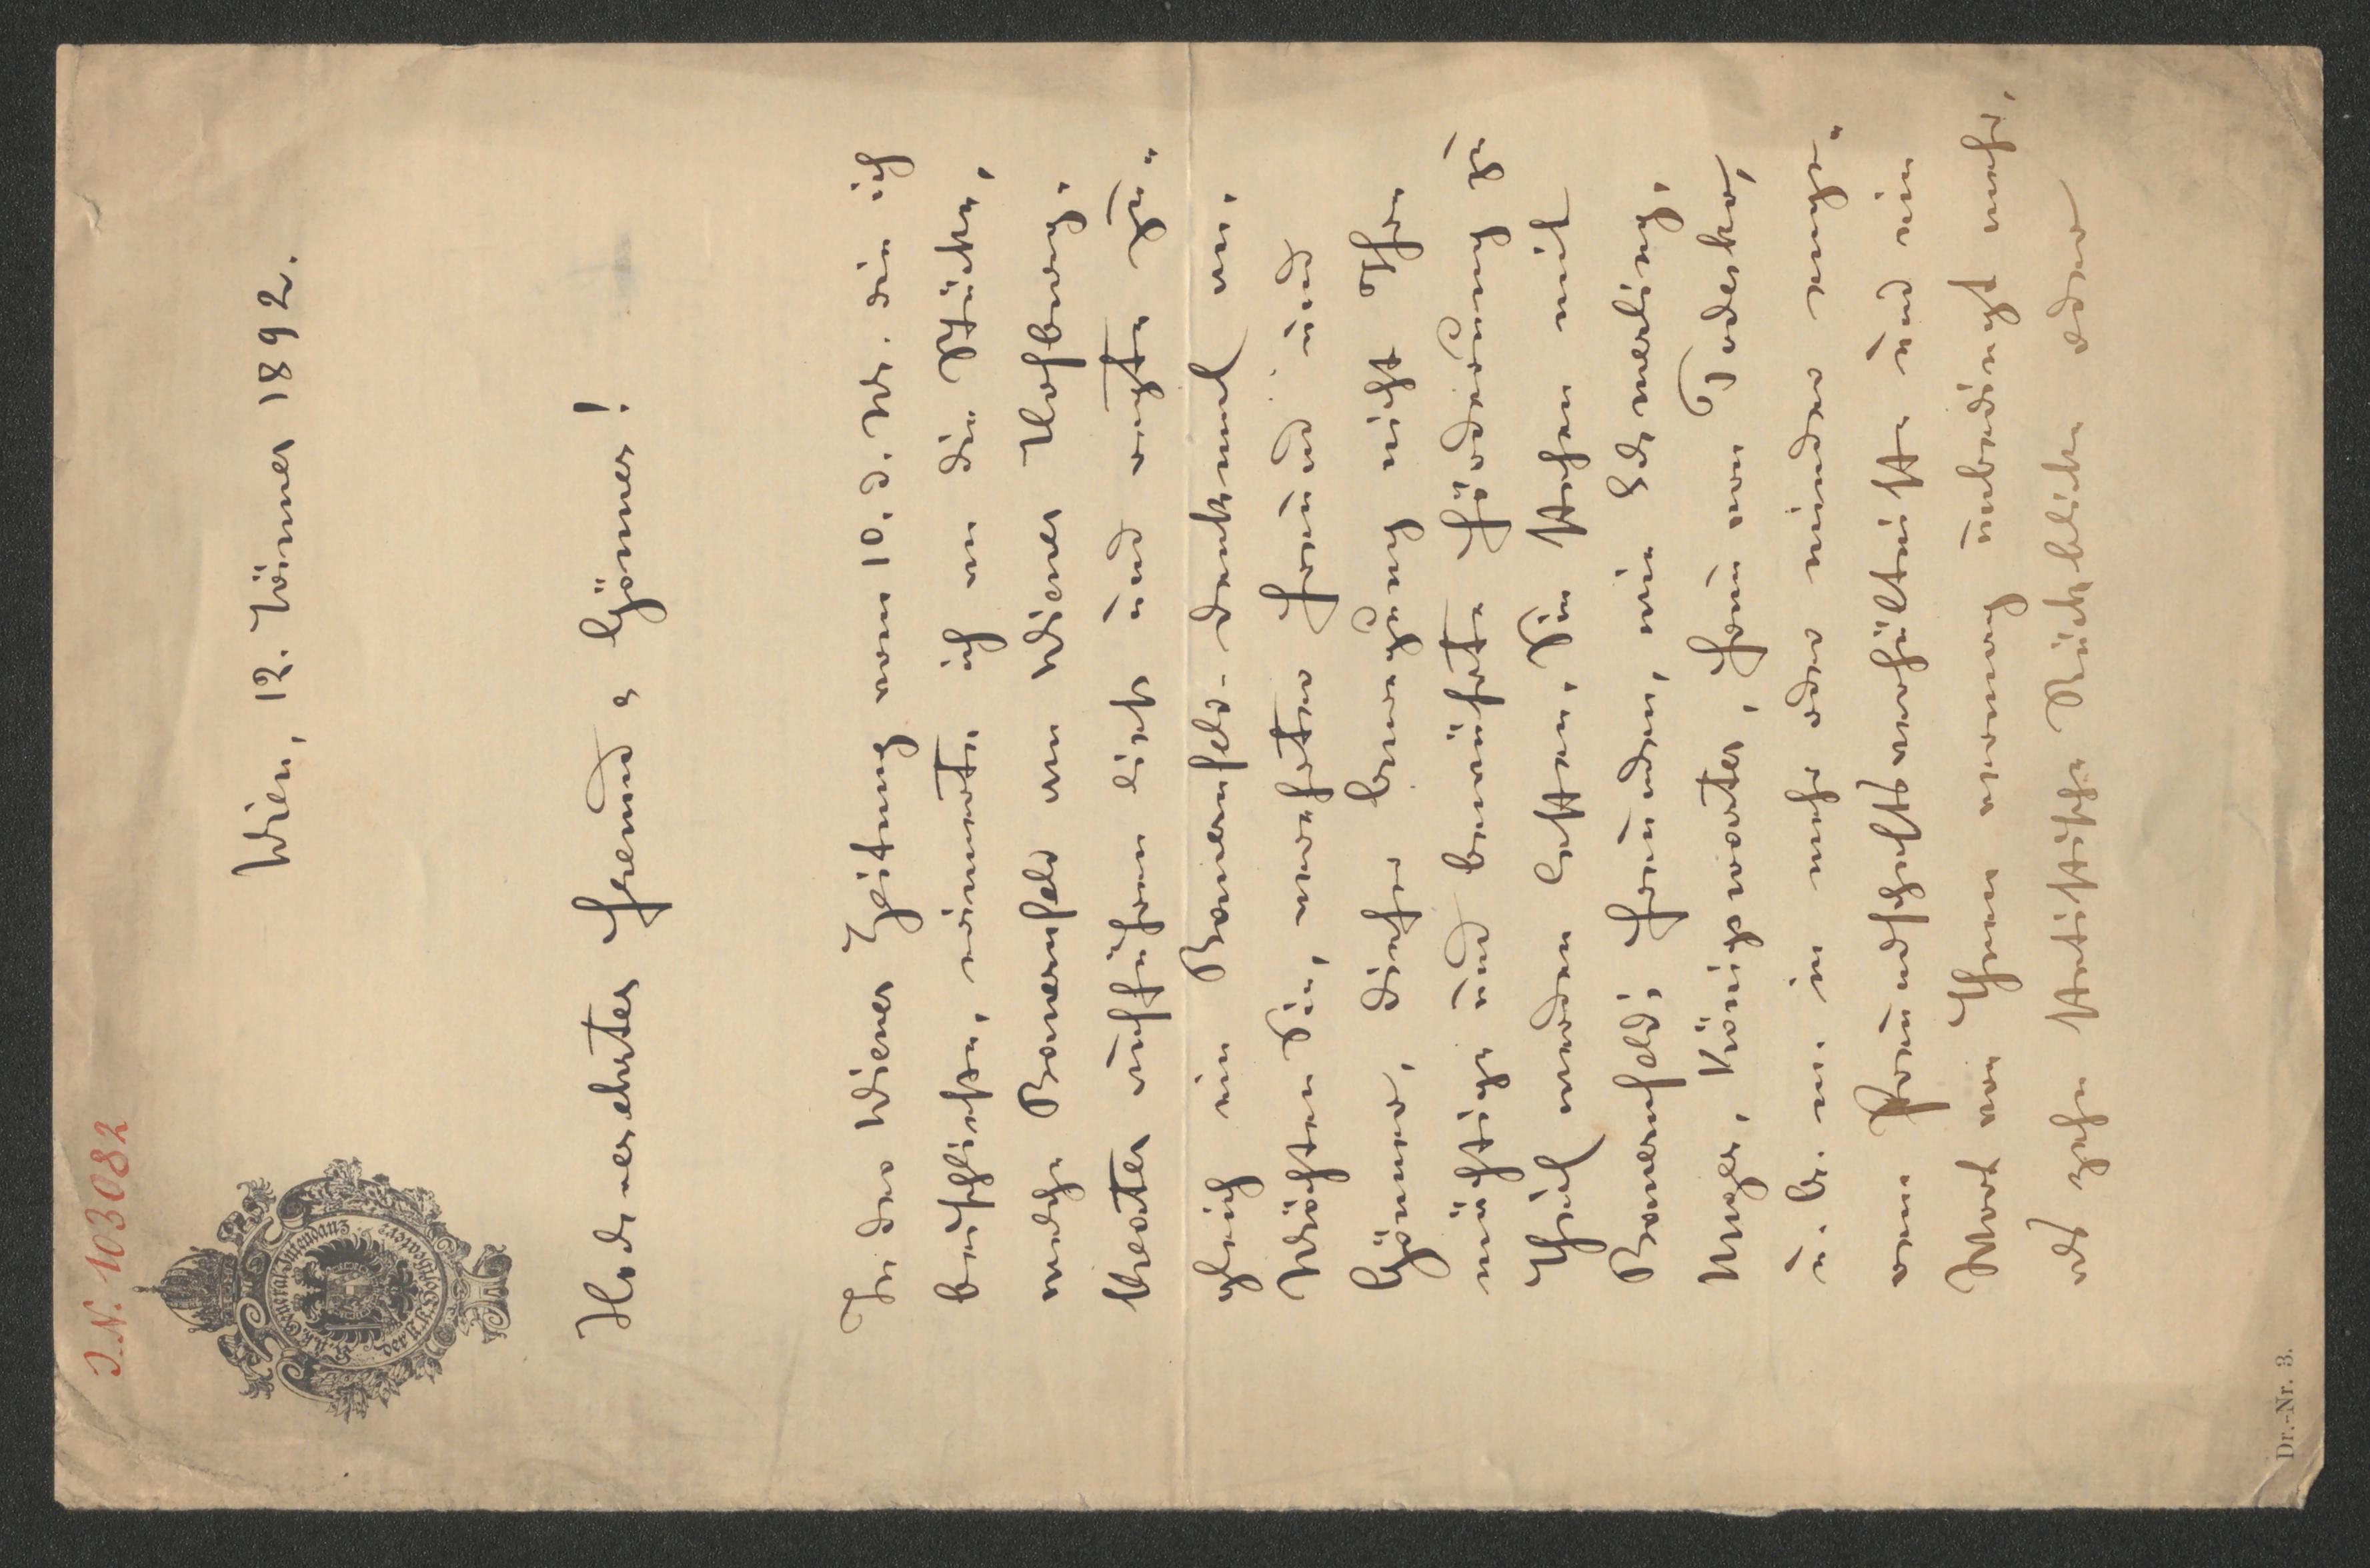 J.N. 103082
K.u.k. General-Intendanz
der K.K. Hoftheater
Wien, 12. Jänner 1892.
Hochverehrter Freund & Gönner!
In der Wiener Zeitung vom 10. d. Ms. die ich
beischließe, erinnerte ich an die Stücke,
welche Bauernfeld am Wiener Hofburg-
theater aufführen ließ und regte zu-
gleich ein Bauernfeld-Denkmal an.
Möchten Sie, verehrter Freund und
Gönner, dieser Bewegung nicht Ihre
mächtige und bewährte Förderung zu
Theil werden lassen. Sie stehen mit
Bauernfelds Freunden, wie Schmerling,
Unger, Königswarter, Frau von Todesko,
u. A. m. in mehr oder minder enge-
rem Freundschaftsverhältniße und ein
Wort von Ihnen vermag unbedingt mehr,
als zehn statistische Rückblicke oder
Dr.-Nr. 3.